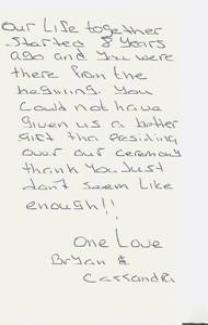 Our Life together
started 8 years
ago and you were
there from the
begining. You
could not have
given us a better
gift tha presiding
over our ceremony
thank you just
don't seem like
enough!!
One Love
Bryan &
Cassandra